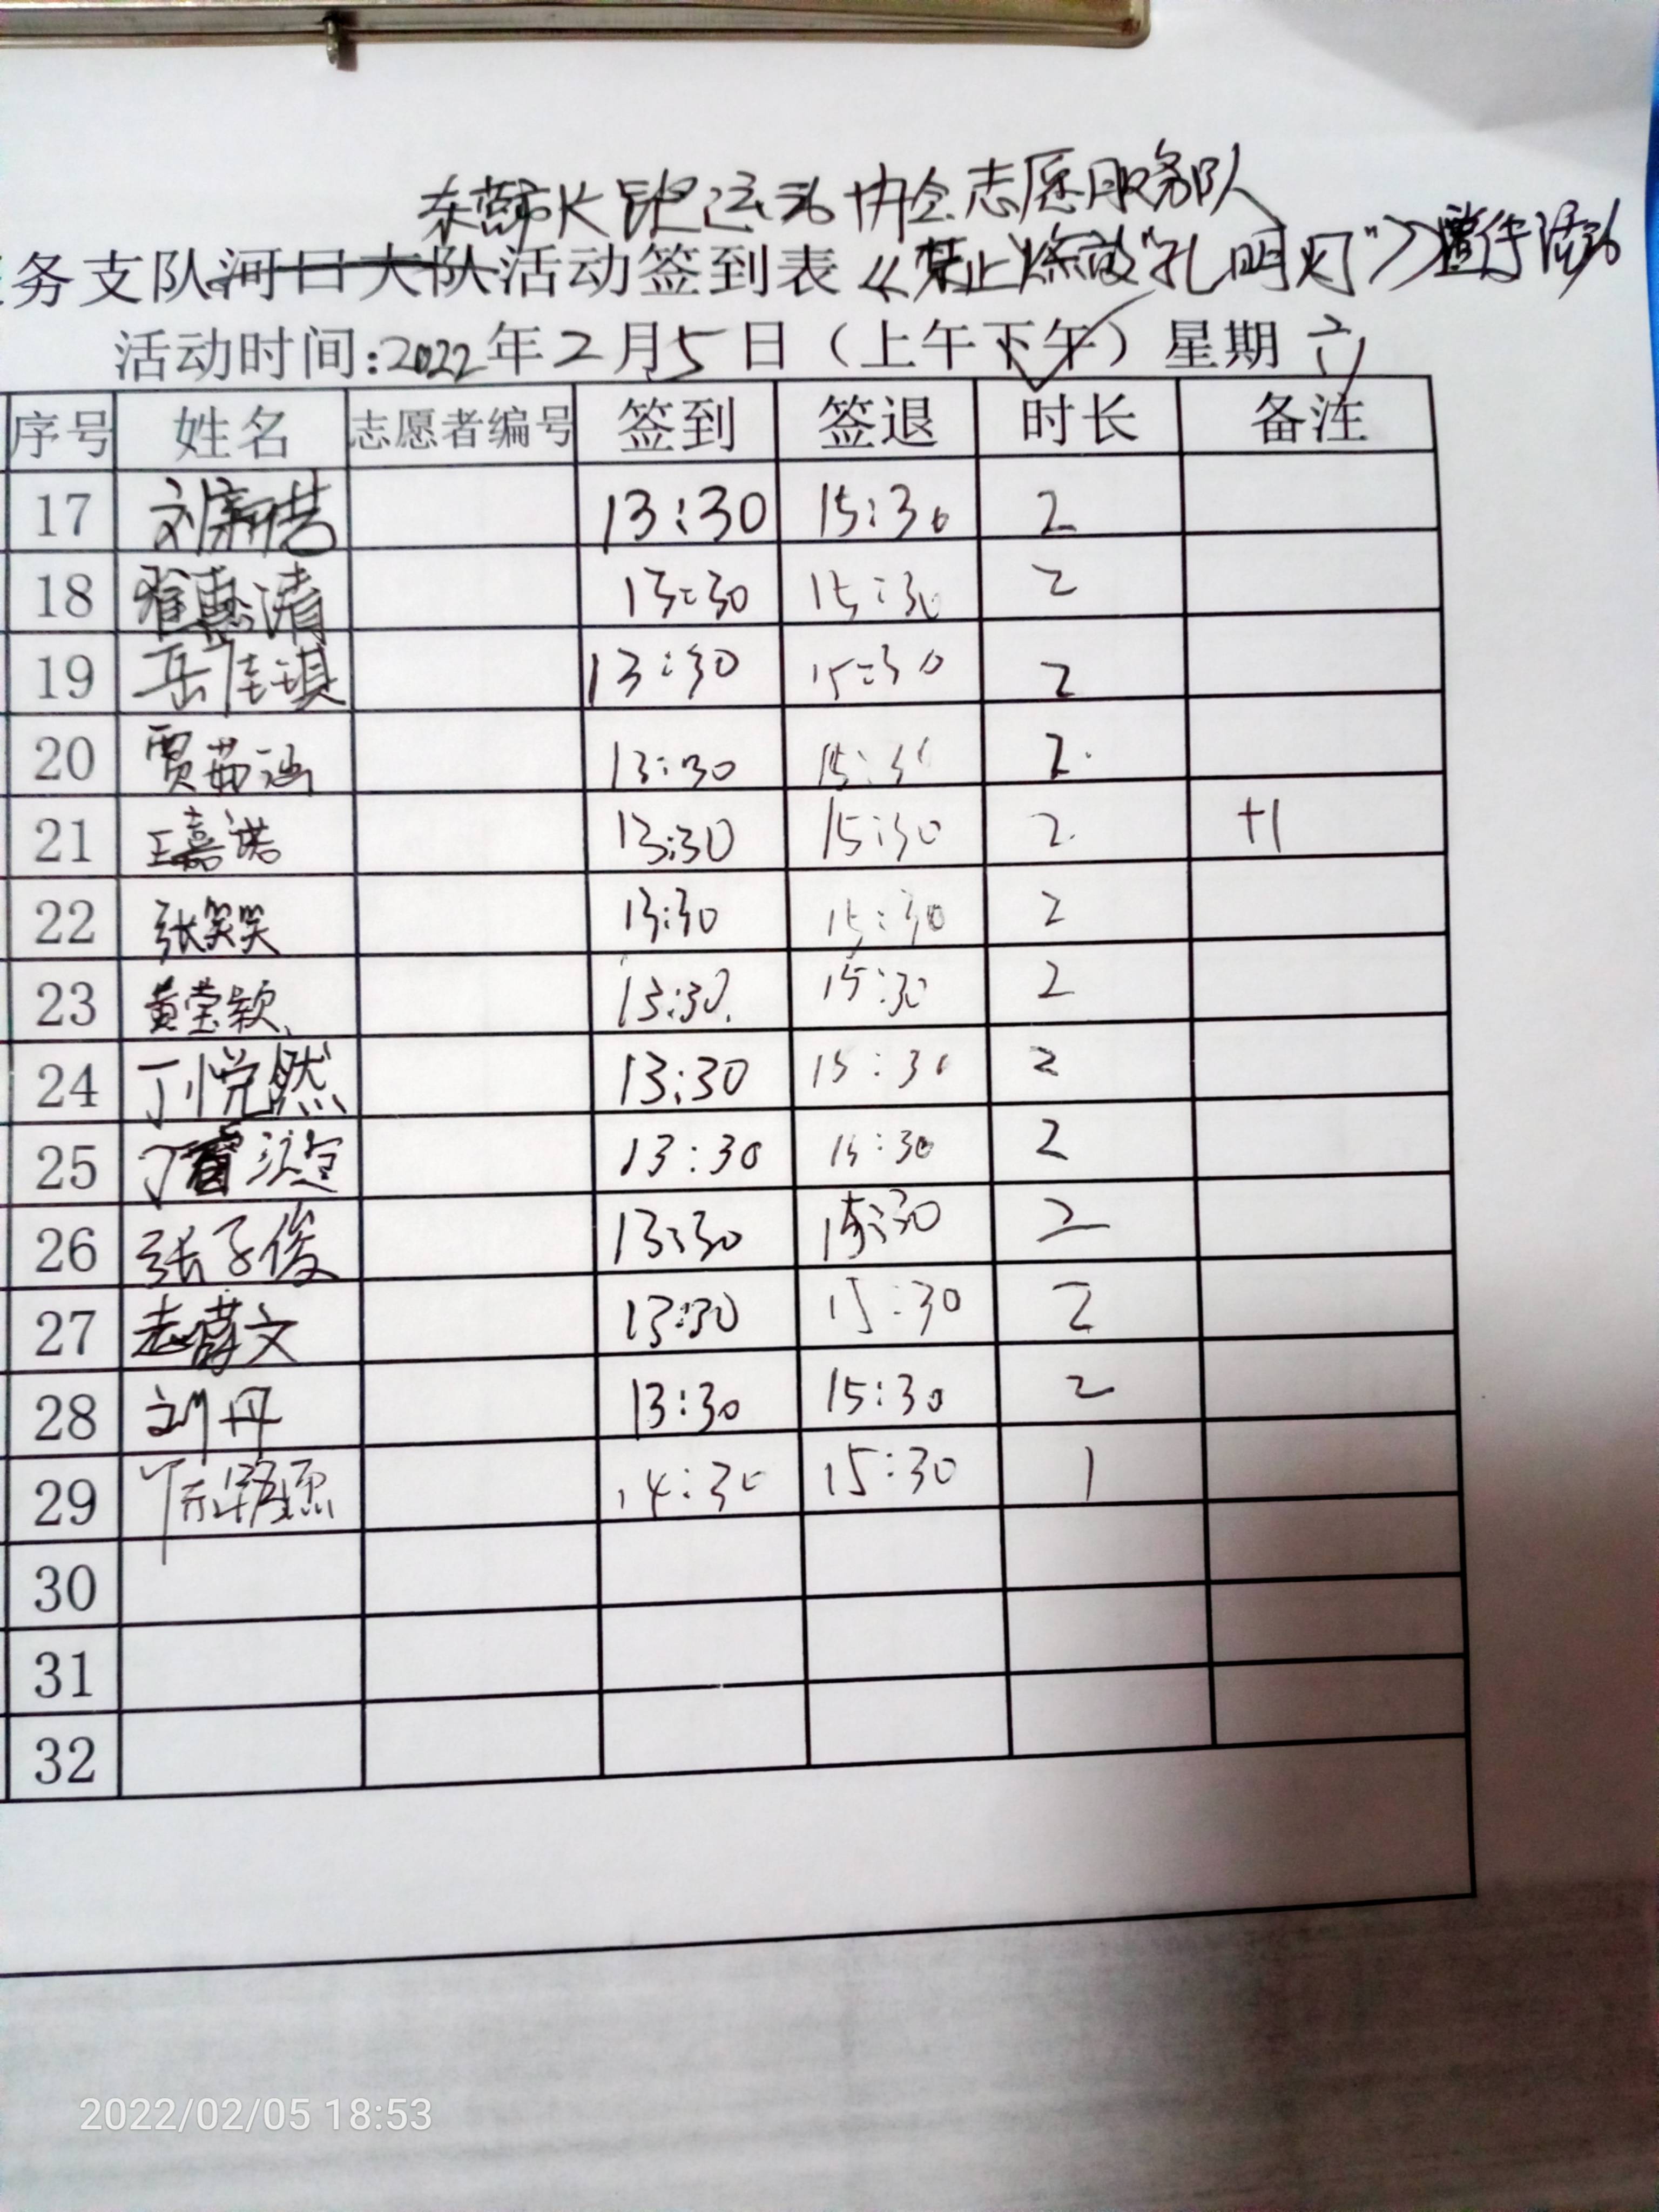 东营市长跑运动协会志愿服务队
务支队河口大队活动签到表《禁止燃放"孔明灯"》宣传活动
活动时间:2022年2月5日（上午下午）星期六
序号 姓名 志愿者编号 签到 签退 时长 备注
17 13:30 15:30 2
18 13:30 15:30 2
19 岳佳琪 13:30 15:30 2
20 贾茹涵 13:30 15:30 2
21 王嘉诺 13:30 15:30 2 +1
22 张笑笑 13:30 15:30 2
23 黄莹颖 13:30 15:30 2
24 丁悦然 13:30 15:30 2
25 13:30 15:30 2
26 张子俊 13:30 15:30 2
27 13:30 15:30 2
28 刘丹 13:30 15:30 2
29 14:30 15:30 1
30
31
32
2022/02/05 18:53